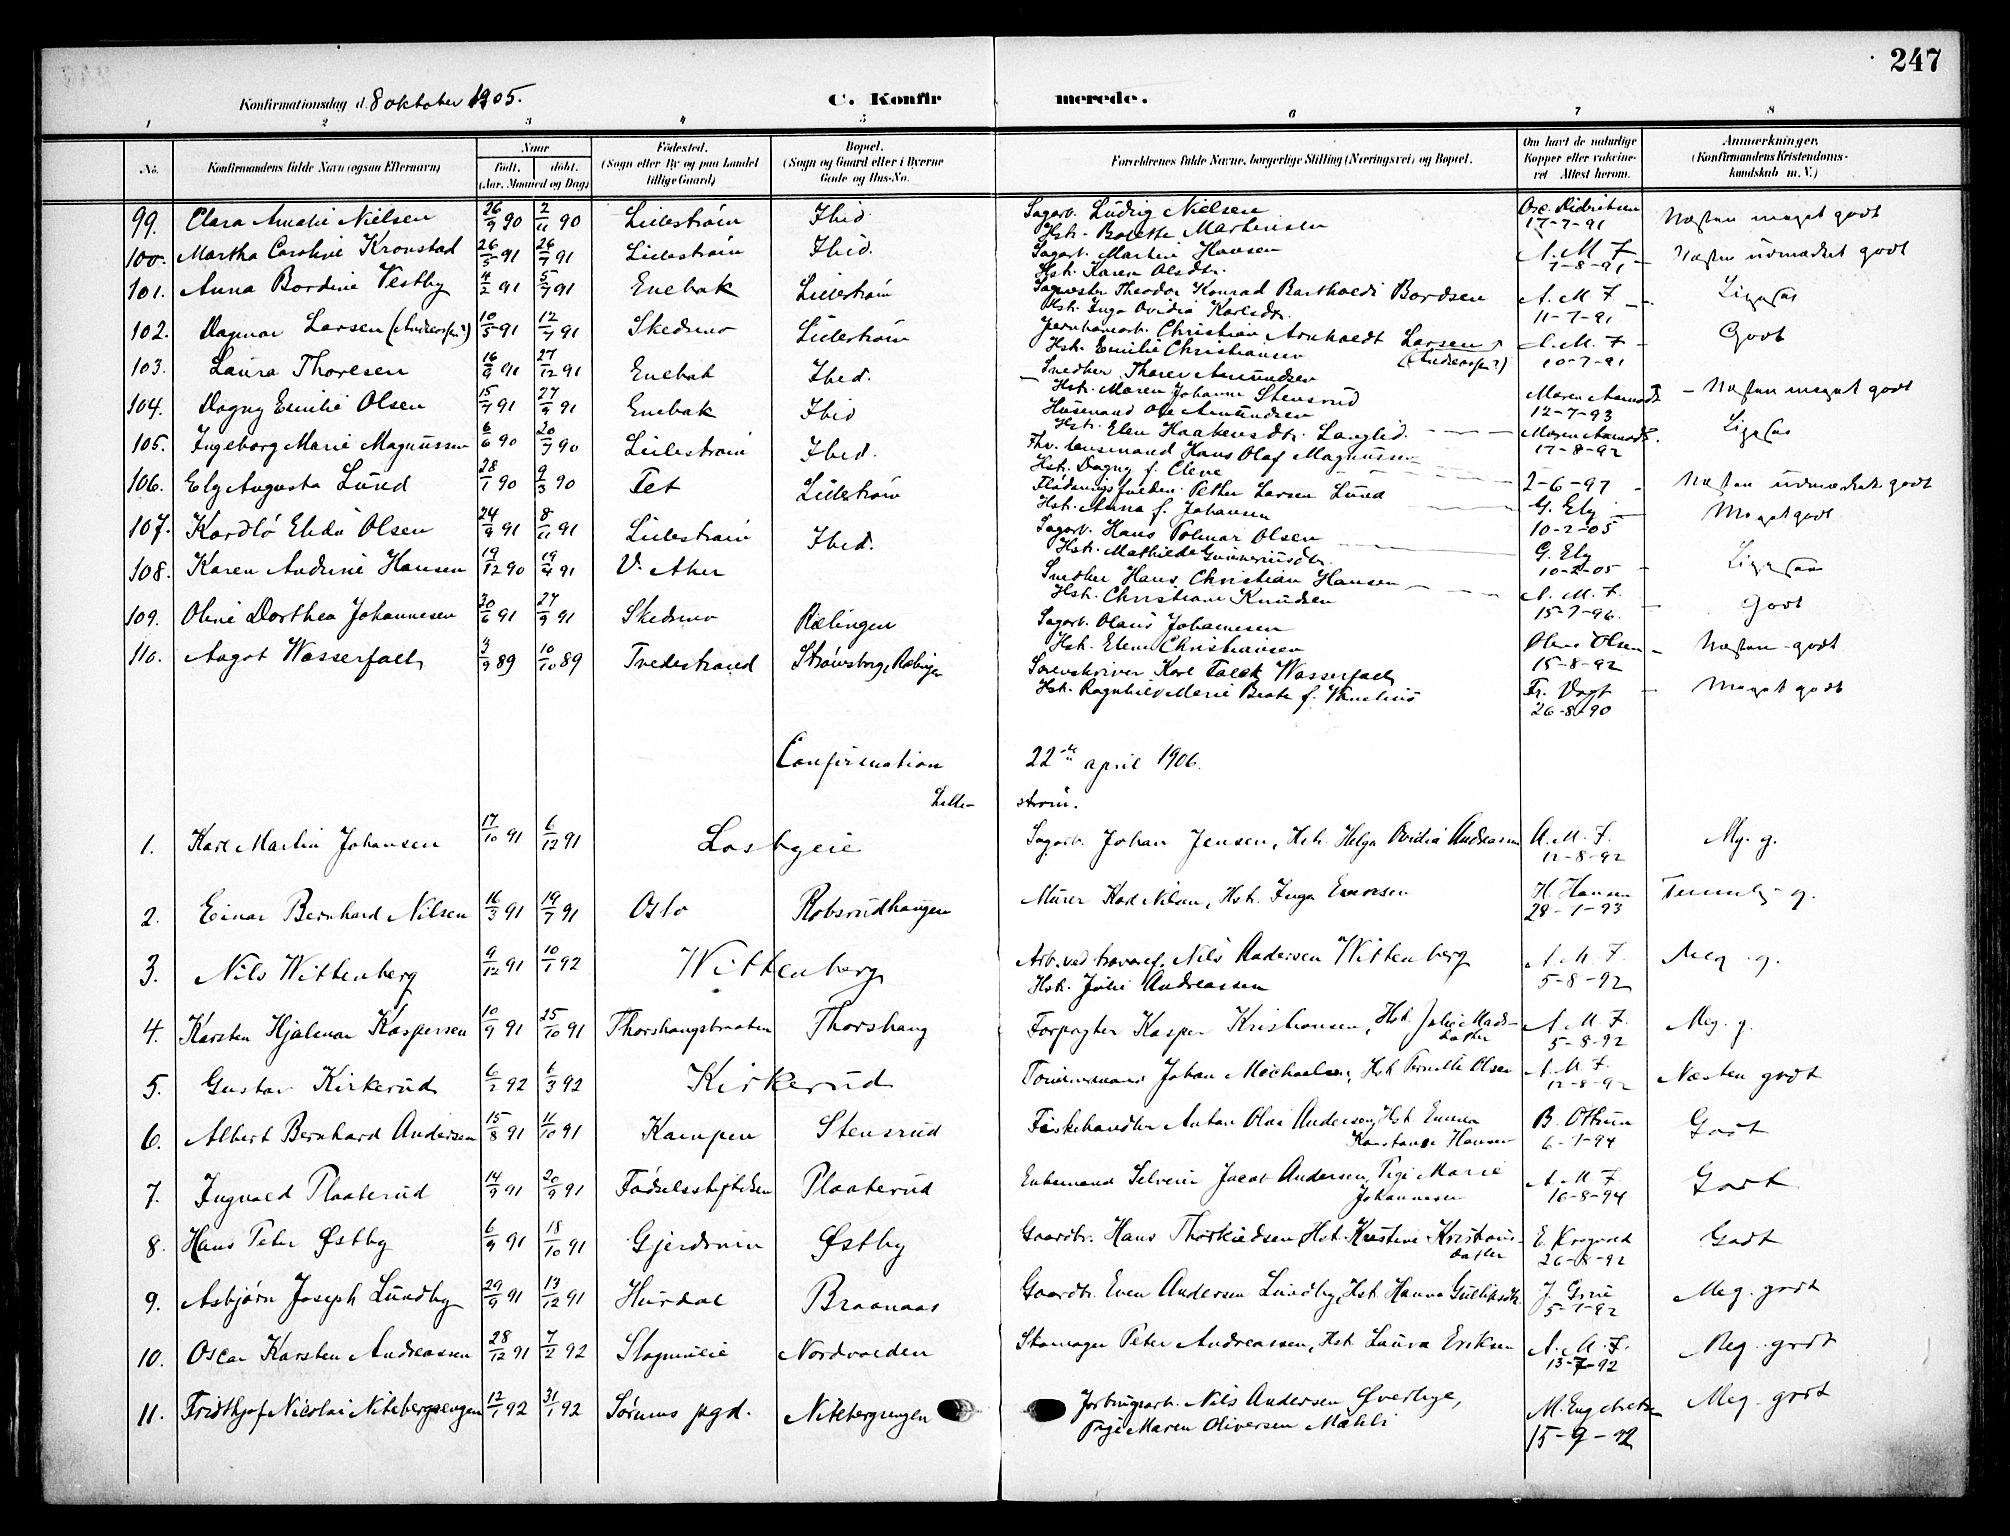 247
Konfirmationsdag d. 8 oktober 1905.
C. Konfirmerede.
1 2 3 4 5 6 7 8
No. Konfirmandens fulde Navn (ogsaa Efternavn) Naar født. døbt. (Aar, Maaned og Dag) Fødested. (Sogn eller By og paa Landet tillige Gaard) Bopæl. (Sogn og Gaard eller i Byerne Gade og Hus-No. Forældrenes fulde Navne, borgerlige Stilling (Næringsvei) og Bopæl. Om havt de naturlige Kopper eller vaksineret Attest herom. Anmærkninger. (Konfirmandens Kristendomskundskab m. V.)
99. Clara Amalie Nielsen 26/9 90 2/11 90 Lillestrøm Ibid. Sagarb. Ludvig Nielsen Hst. Bolette Martinsen 17-7-91 Næsten meget godt
100. Martha Caroline Kronstad 26/5 91 26/7 91 Lillestrøm Ibid. Sagarb. Martin Hansen Hst. Karen Olsdtr. A. M. F. 7-8-91 Næsten udmærket godt
101. Anna Bordine Vestby 4/2 91 5/7 91 Enebak Lillestrøm Sagmester Theodor Konrad Bartholdi Bordsen Hst. Inga Ovidia Karlsdtr. A. M. F. 11-7-91 Ligesaa
102. Dagmar Larsen (Andersen?) 10/5 91 12/7 91 Skedsmo Lillestrøm Jernbanearb. Christian Arnholdt Larsen (Andersen?) Hst. Emilie Christiansen A. M. F. 10-7-91 Godt
103. Laura Thoresen 16/9 91 27/12 91 Enebak Ibid. Snedker Thorer Amundsen Hst. Maren Johanne Stensrud Maren Aamodt 12-7-93 Næsten meget godt
104. Dagny Emilie Olsen 15/7 91 27/9 91 Enebak Ibid Husmand Ole Amundsen Hst. Elen Haakensdtr. Langlid. Maren Aamodt. 17-8-92 Ligesaa
105. Ingeborg Marie Magnussen 6/6 90 20/7 90 Lillestrøm Ibid. Fhv. Lensmand Hans Olaf Magnussen Hst. Dagny f. Cleve 2-6-97 Næsten udmærket godt
106. Ely Augusta Lund 28/1 90 9/3 90 Fet Lillestrøm Petter Larsen Lund Hst. Anna f. Johansen G. Ely 10-2-05 Meget godt
107. Kordló Elida Olsen 24/9 91 8/11 91 Lillestrøm Ibid. Sagarb. Hans Polmar Olsen Hst. Mathilde Gunneriusdtr. G. Ely 10-2-05 Ligesaa
108. Karen Andrine Hansen 19/12 90 19/4 91 V. Aker Snedker Hans Christian Hansen Hst. Christiane Knudsen A. M. F. 15-7-96. Godt
109. Oline Dorthea Johannesen 30/6 91 27/9 91 Skedsmo Rælingen Sagarb. Olaus Johannesen Hst. Elene Christiansen Olava Olsen 15-8-92 Næsten godt
110. Aagot Wasserfall 3/9 89 10/10 89 Tvedestrand Strømsborg, Rælingen Sorenskriver Karl Falck Wasserfall Hst. Ragnhild Marie Beate f. Fr. Vogt 26-8-90 Meget godt
Confirmation 22de april 1906.
Lillestrøm.
1. Karl Martin Johansen 17/10 91 6/12 91 Losbyeie Sagarb. Johan Jensen, Hst. Helga Ovidia Andreassen A. M. F. 12-8-92 Mg. g.
2. Einar Bernhard Nilsen 16/3 91 19/7 91 Oslo Robsrudhaugen Murer Karl Nilsen, Hst. Inga Enersen H. Hansen 28-1-93 Temmelig g.
3. Nils Wittenberg 9/12 91 10/1 92 Wittenberg Arb. ved travaref. Nils Andersen Wittenberg Hst. Julie Andreassen A. M. F. 5-8-92 Meg. g.
4. Karsten Hjalmar Kaspersen 10/9 91 25/10 91 Thorshaugbraaten Thorshaug Forpagter Kasper Kristiansen, Hst. Julie Madsdatter A. M. F. 5-8-92 Meg. g.
5. Gustav Kirkerud 6/1 92 6/3 92 Kirkerud Tømmermand Johan Michaelsen, Hst. Pernille Olsen A. M. F. 12-8-92 Næsten godt
6. Albert Bernhard Andersen 15/8 91 11/10 91 Kampen Stensrud Fiskehandler Anton Olai Andersen, Hst. Emma Konstanse Hansen B. Ottesen 6-1-94 Godt
7. Ingvald Plaaterud 14/9 91 20/9 91 Fødselsstiftelsen Plaaterud Enkemand Selveier Jacob Andersen, Pige Marie Johannesen A. M. F. 16-8-94 Godt
8. Hans Peter Østby 6/9 91 18/10 91 Gjerdrum Østby Gaardbr. Hans Thorkildsen, Hst. Kristine Kristiansdatter E. Krogvold 26-8-92 Godt
9. Asbjørn Joseph Lundby 29/9 91 13/12 91 Hurdal Braanaas Gaardbr. Even Andersen Lundby, Hst. Hanna Gulliksdtr. J. Grue 5-7-92 Meg. godt
10. Oscar Karsten Andreassen 28/12 91 7/2 92 Slagmølle Nordvolden Skomager Peter Andreassen, Hst. Laura Eriksen A. M. F. 13-7-92 Meg. godt
11. Fridthjof Nicolai Nitebergsengen 12/1 92 31/1 92 Sørums pgd. Nitebergsengen Jordbrugsarb. Nils Andersen Øverbye, Pige Maren Oliversen Mæhli M. Engebretsen 15-9-92 Meg. godt